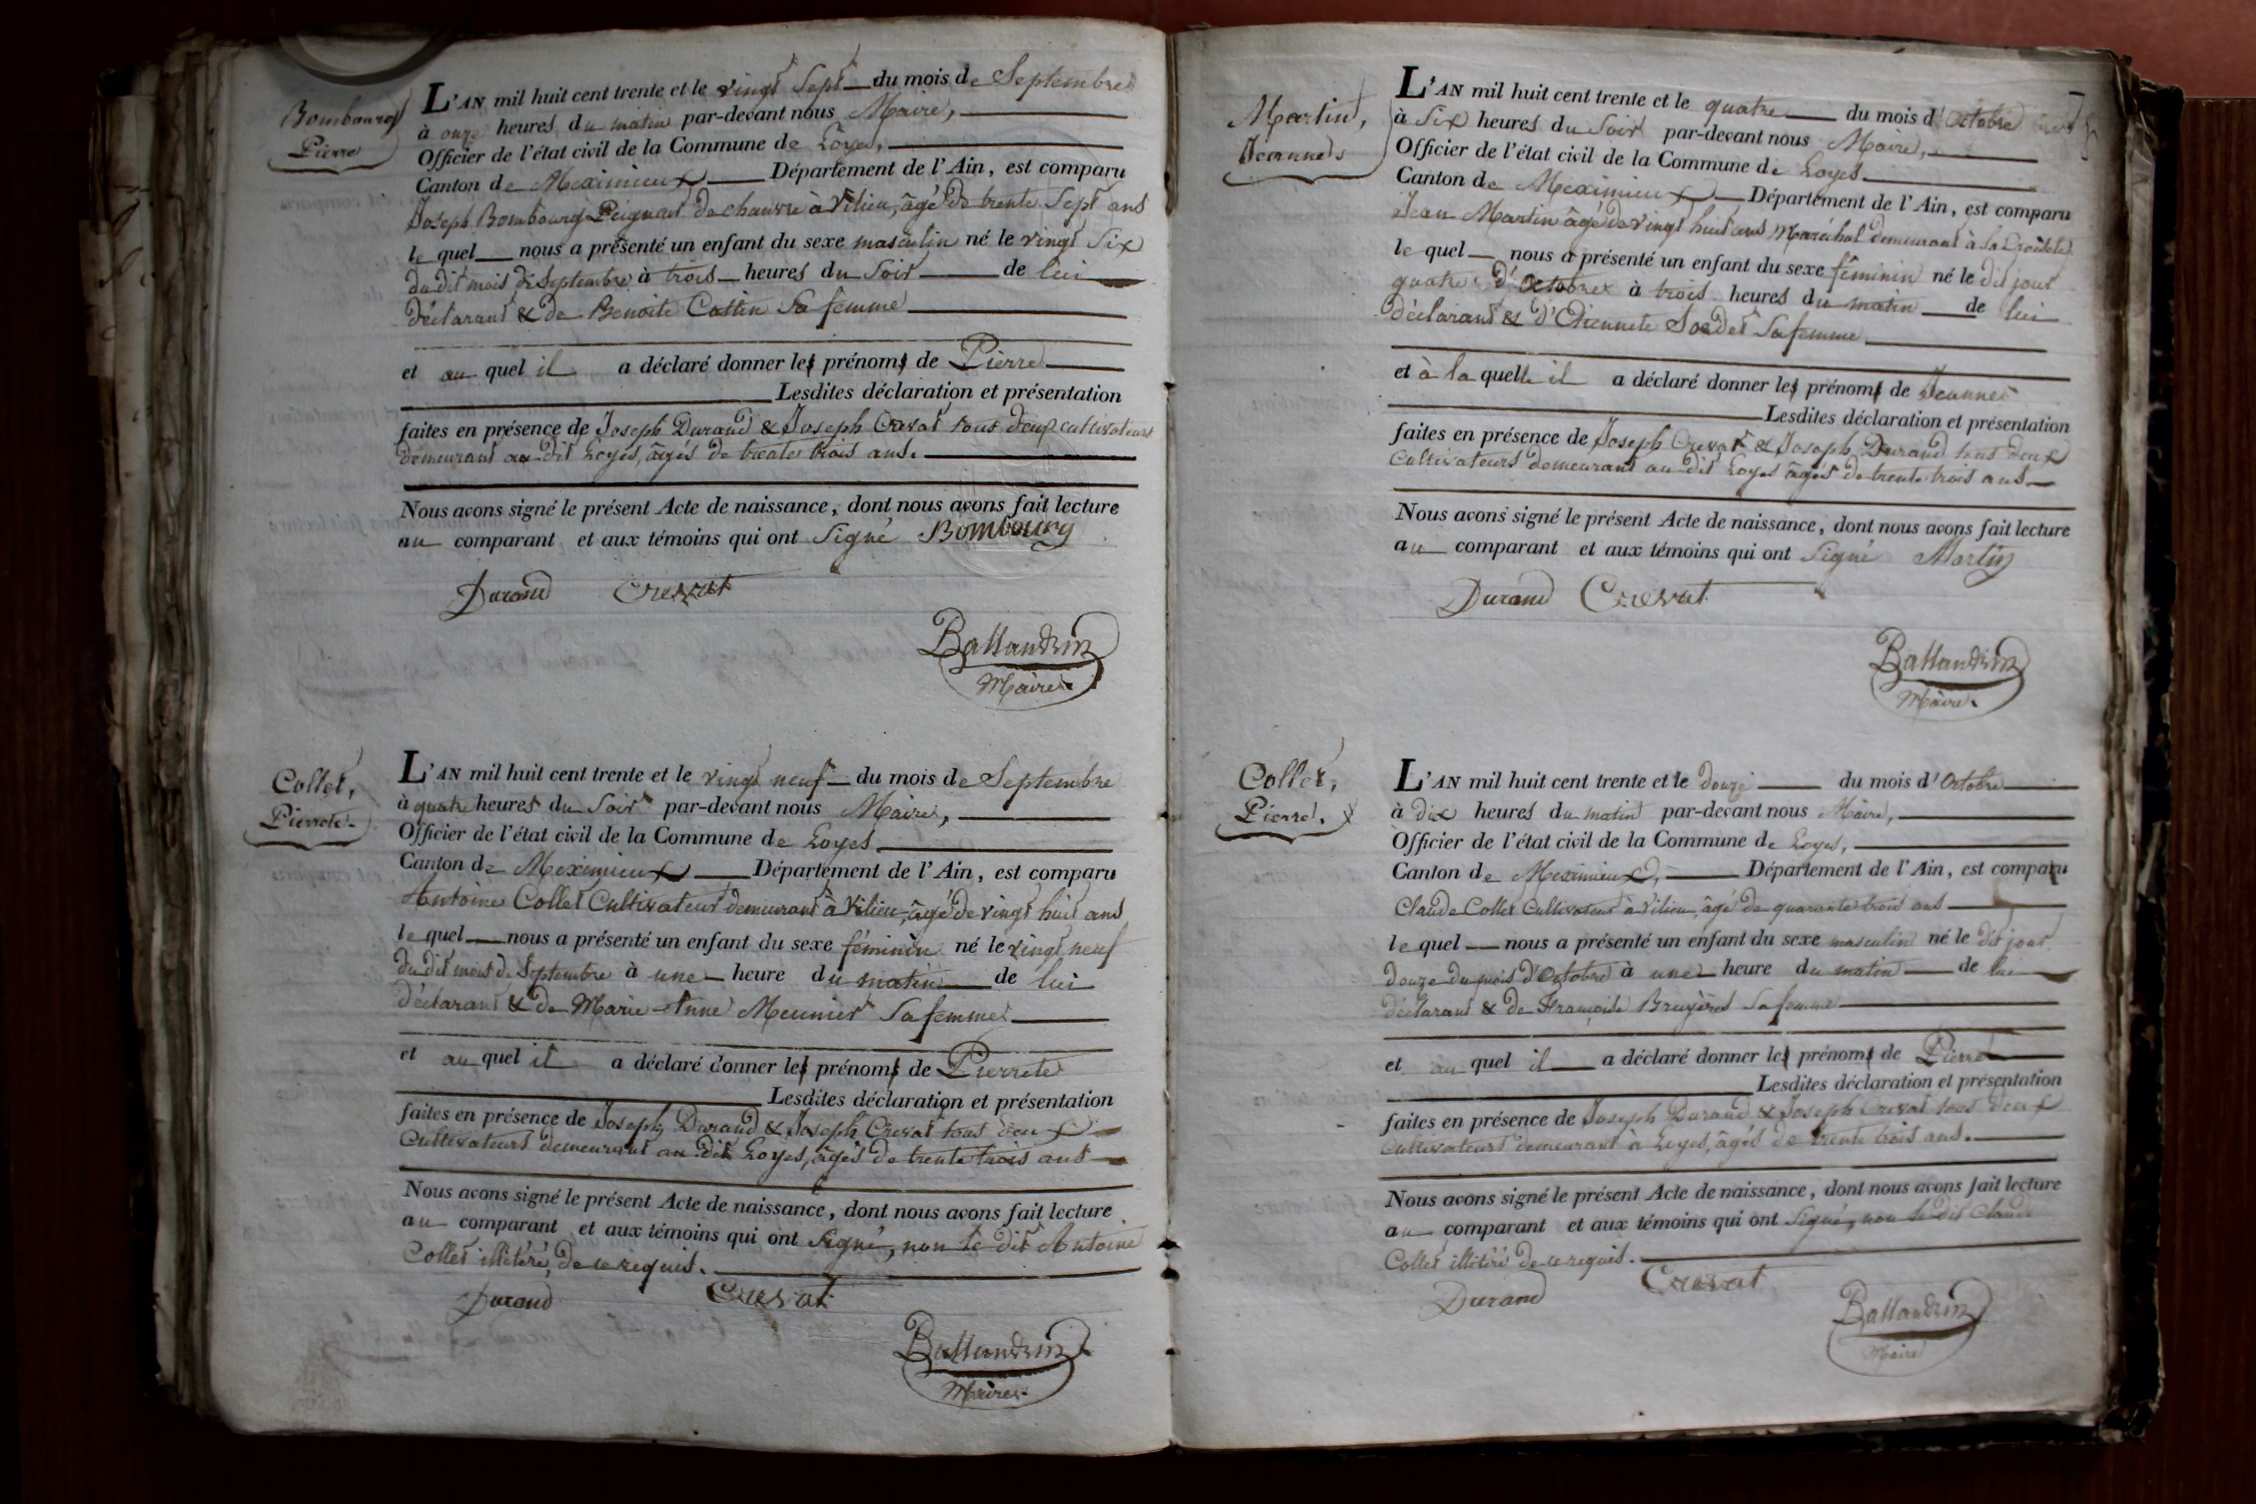 Bombourg
Pierre
L'AN mil huit cent trente et le vingt sept du mois de Septembre
à onze heures du matin par-devant nous Maire,
Officier de l'état civil de la Commune de Loyes,
Canton de Meximieux Département de l'Ain, est comparu
Joseph Bombourg Peigneur de chanvre à Vilieu, âgé de trente Sept ans
le quel nous a présenté un enfant du sexe masculin né le vingt Six
du dit mois de Septembre à trois heures du Soir de lui
déclarant & de Benoite Cattin Sa femme
et au quel il a déclaré donner les prénoms de Pierre
Lesdites déclaration et présentation
faites en présence de Joseph Durand & Joseph Crevat tous deux cultivateurs
demeurant au dit Loyes, âgés de trente trois ans.
Nous avons signé le présent Acte de naissance, dont nous avons fait lecture
au comparant et aux témoins qui ont Signé Bombourg
Durand Crevat
Ballandrin
Maire
Collet,
Pierrete
L'AN mil huit cent trente et le vingt neuf du mois de Septembre
à quatre heures du Soir par-devant nous Maire,
Officier de l'état civil de la Commune de Loyes
Canton de Meximieux Département de l'Ain, est comparu
Antoine Collet Cultivateur demeurant à Vilieu, âgé de vingt huit ans
le quel nous a présenté un enfant du sexe féminin né le vingt neuf
du dit mois de Septembre à une heure du matin de lui
déclarant & de Marie Anne Meunier Sa femme
et au quel il a déclaré donner les prénoms de Pierrete
Lesdites déclaration et présentation
faites en présence de Joseph Durand & Joseph Crevat tous deux
Cultivateurs demeurant au dit Loyes, âgés de trente trois ans
Nous avons signé le présent Acte de naissance, dont nous avons fait lecture
au comparant et aux témoins qui ont Signé, non le dit Antoine
Collet illitéré, de ce requis.
Durand Crevat
Ballandrin
Maire
Martin,
Jeanne
L'AN mil huit cent trente et le quatre du mois d'Octobre
à Six heures du Soir par-devant nous Maire,
Officier de l'état civil de la Commune de Loyes
Canton de Meximieux Département de l'Ain, est comparu
Jean Martin âgé de vingt huit ans Maréchal demeurant à la
le quel nous a présenté un enfant du sexe féminin né le dit jour
quatre d'Octobre à trois heures du matin de lui
déclarant & d'Etiennete Sa femme
et à la quelle il a déclaré donner les prénoms de Jeanne
Lesdites déclaration et présentation
faites en présence de Joseph Crevat & Joseph Durand tous deux
Cultivateurs demeurant au dit Loyes âgés de trente trois ans
Nous avons signé le présent Acte de naissance, dont nous avons fait lecture
au comparant et aux témoins qui ont Signé Martin
Durand Crevat
Ballandrin
Maire.
Collet,
Pierre,
L'AN mil huit cent trente et le douze du mois d'Octobre
à dix heures du matin par-devant nous Maire,
Officier de l'état civil de la Commune de Loyes,
Canton de Meximieux, Département de l'Ain, est comparu
Claude Collet Cultivateur à Vilieu, âgé de quarante trois ans
le quel nous a présenté un enfant du sexe masculin né le dit jour
douze du mois d'Octobre à une heure du matin de lui
déclarant & de Françoise Bruyères Sa femme
et au quel il a déclaré donner les prénoms de Pierre
Lesdites déclaration et présentation
faites en présence de Joseph Durand & Joseph Crevat tous deux
Cultivateurs demeurant à Loyes, âgés de trente trois ans.
Nous avons signé le présent Acte de naissance, dont nous avons fait lecture
au comparant et aux témoins qui ont Signé, non le dit Claude
Collet illitéré de ce requis.
Durand Crevat
Ballandrin
Maire